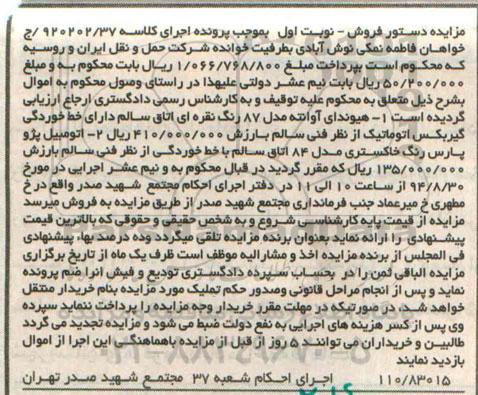 مزایده دستور فروش - نوبت اول  بموجب پرونده اجرای کلاسه ۹۲۰۲۰۲/۳۷ /ج
خواهان فاطمه نمکی نوش آبادی بطرفیت خوانده شرکت حمل و نقل ایران و روسیه
که محکوم است بپرداخت مبلغ ۱/۰۶۶/۷۶۸/۸۰۰ ریال بابت محکوم به و مبلغ
۵۰/۴۰۰/۰۰۰ ریال بابت نیم عشر دولتی علیهذا در راستای وصول محکوم به اموال
بشرح ذیل متعلق به محکوم علیه توقیف و به کارشناس رسمی دادگستری ارجاع ارزیابی
گردیده است ۱- هیوندای آوانته مدل ۸۷ رنگ نقره ای اتاق سالم دارای خط خوردگی
گیربکس اتوماتیک از نظر فنی سالم بارزش ۴۱۰/۰۰۰/۰۰۰ ریال ۲- اتومبیل پژو
پارس رنگ خاکستری مدل ۸۴ اتاق سالم با خط خوردگی از نظر فنی سالم بارزش
۱۳۵/۰۰۰/۰۰۰ ریال که مقرر گردید در قبال محکوم به و نیم عشر اجرایی در مورخ
۹۴/۸/۳۰ از ساعت ۱۰ الی ۱۱ در دفتر اجرای احکام مجتمع شهید صدر واقع در خ
مطهری خ میرعماد جنب فرمانداری مجتمع شهید صدر از طریق مزایده به فروش میرسد
مزایده از قیمت پایه کارشناسی شروع و به شخص حقیقی و حقوقی که بالاترین قیمت
پیشنهادی را ارائه نماید بعنوان برنده مزایده تلقی میگردد وده درصد بهاء پیشنهادی
فی المجلس از برنده مزایده اخذ و مشارالیه موظف است ظرف یک ماه از تاریخ برگزاری
مزایده الباقی ثمن را در بحساب سپرده دادگستری تودیع و فیش انرا ضم پرونده
نماید و پس از انجام مراحل قانونی وصدور حکم تملیک مورد مزایده بنام خریدار منتقل
خواهد شد در صورتیکه در مهلت مقرر خریدار وجه مزایده را پرداخت ننماید سپرده
وی پس از کسر هزینه های اجرایی به نفع دولت ضبط می شود و مزایده تجدید می گردد
طالبین و خریداران می توانند ۵ روز از قبل از مزایده باهماهنگی این اجرا از اموال
بازدید نمایند
۱۱۰/۸۳۰۱۵  اجرای احکام شعبه ۳۷ مجتمع شهید صدر تهران